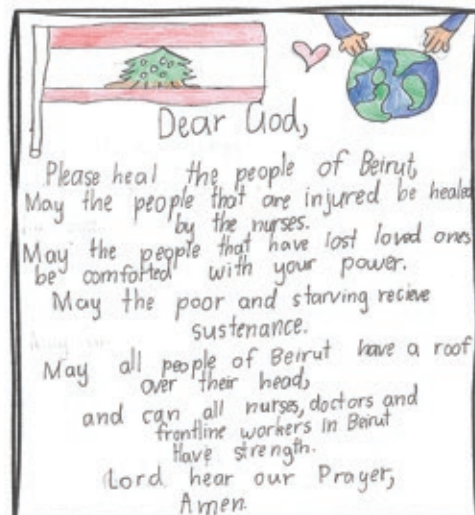 Dear God,
Please heal the people of Beirut,
May the people that are injured be healed
by the nurses.
May the people that have lost loved ones
be comforted with your power.
May the poor and starving recieve
sustenance.
May all people of Beirut have a roof
over their head,
and can all nurses, doctors and
frontline workers in Beirut
Have strength.
Lord hear our Prayer,
Amen.